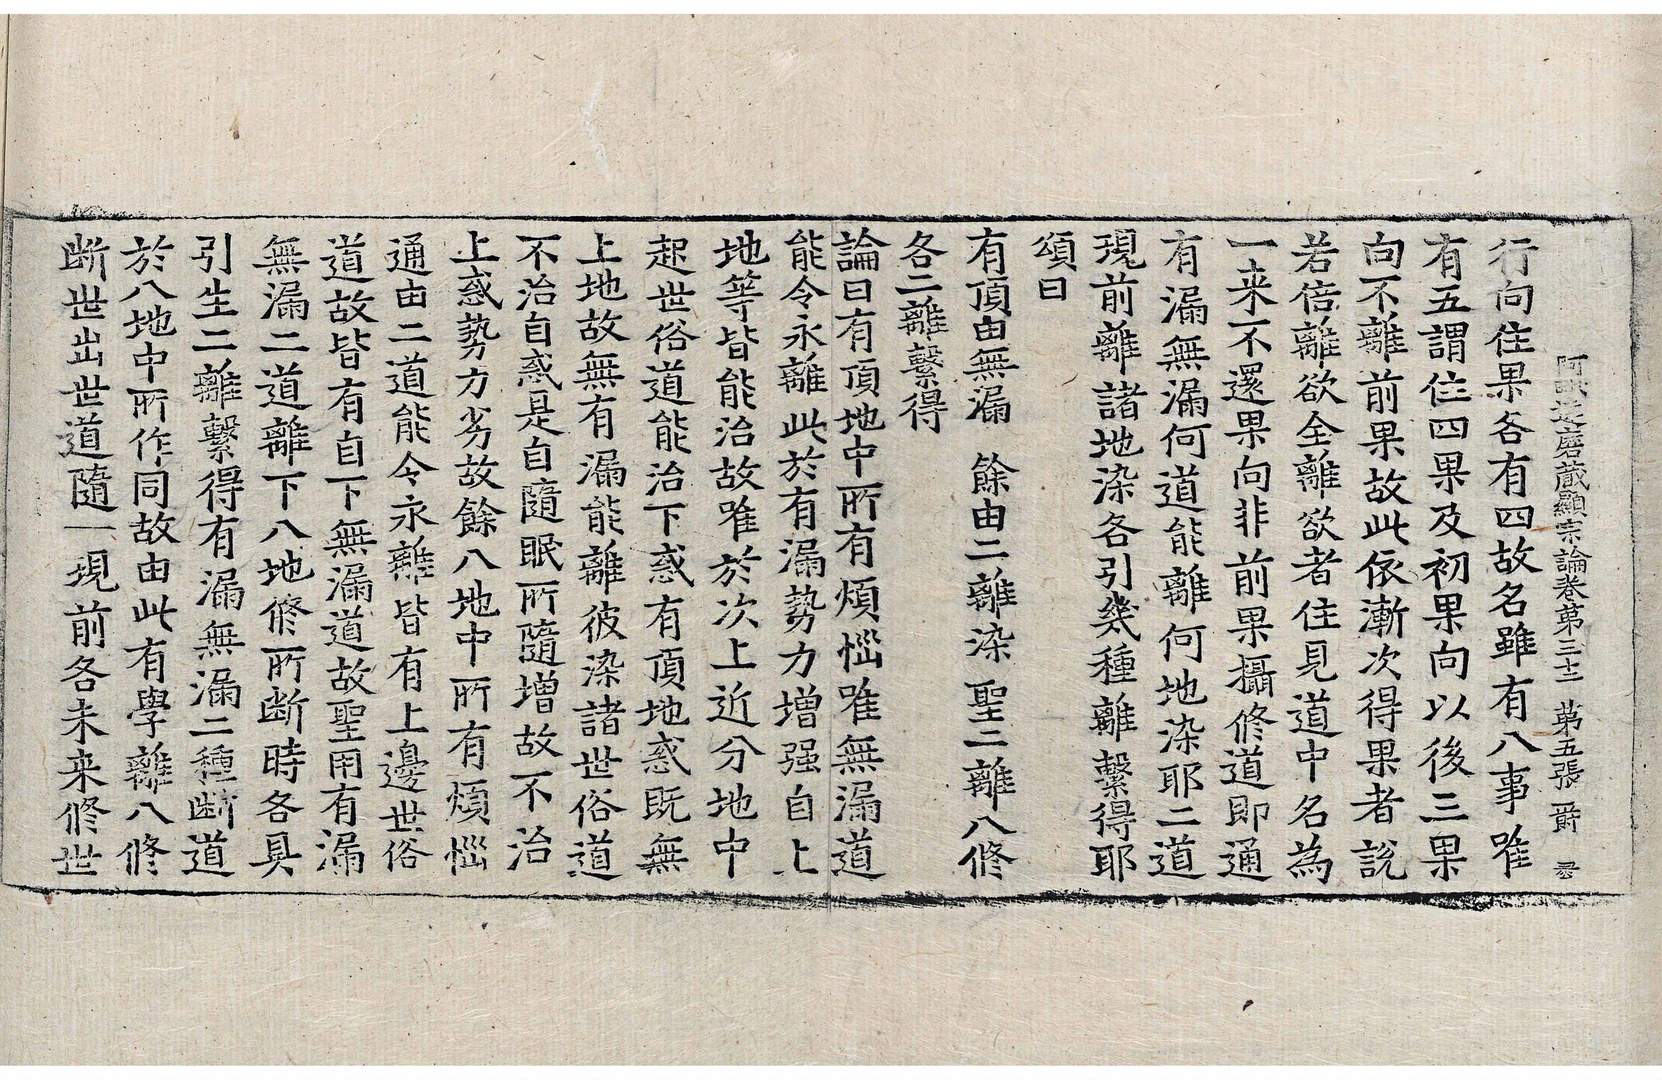 阿毗達磨藏顯宗論卷第三十三 第五張 爵
行向住果各有四故名雖有八事唯
有五謂住四果及初果向以後三果
向不離前果故此依漸次得果者說
若倍離欲全離欲者住見道中名為
一来不還果向非前果攝修道即通
有漏無漏何道能離何地染耶二道
現前離諸地染各引幾種離繫得耶
頌曰
有頂由無漏 餘由二離染 聖二離八修
各二離繫得
論曰有頂地中所有煩惱唯無漏道
能令永離此於有漏勢力增强自上
地等皆能治故唯於次上近分地中
起世俗道能治下惑有頂地惑既無
上地故無有漏能離彼染諸世俗道
不治自惑是自隨眠所隨增故不治
上惑勢力劣故餘八地中所有煩惱
通由二道能令永離皆有上邊世俗
道故皆有自下無漏道故聖用有漏
無漏二道離下八地修所断時各具
引生二離繫得有漏無漏二種断道
於八地中所作同故由此有學離八修
断世出世道隨一現前各未来修世